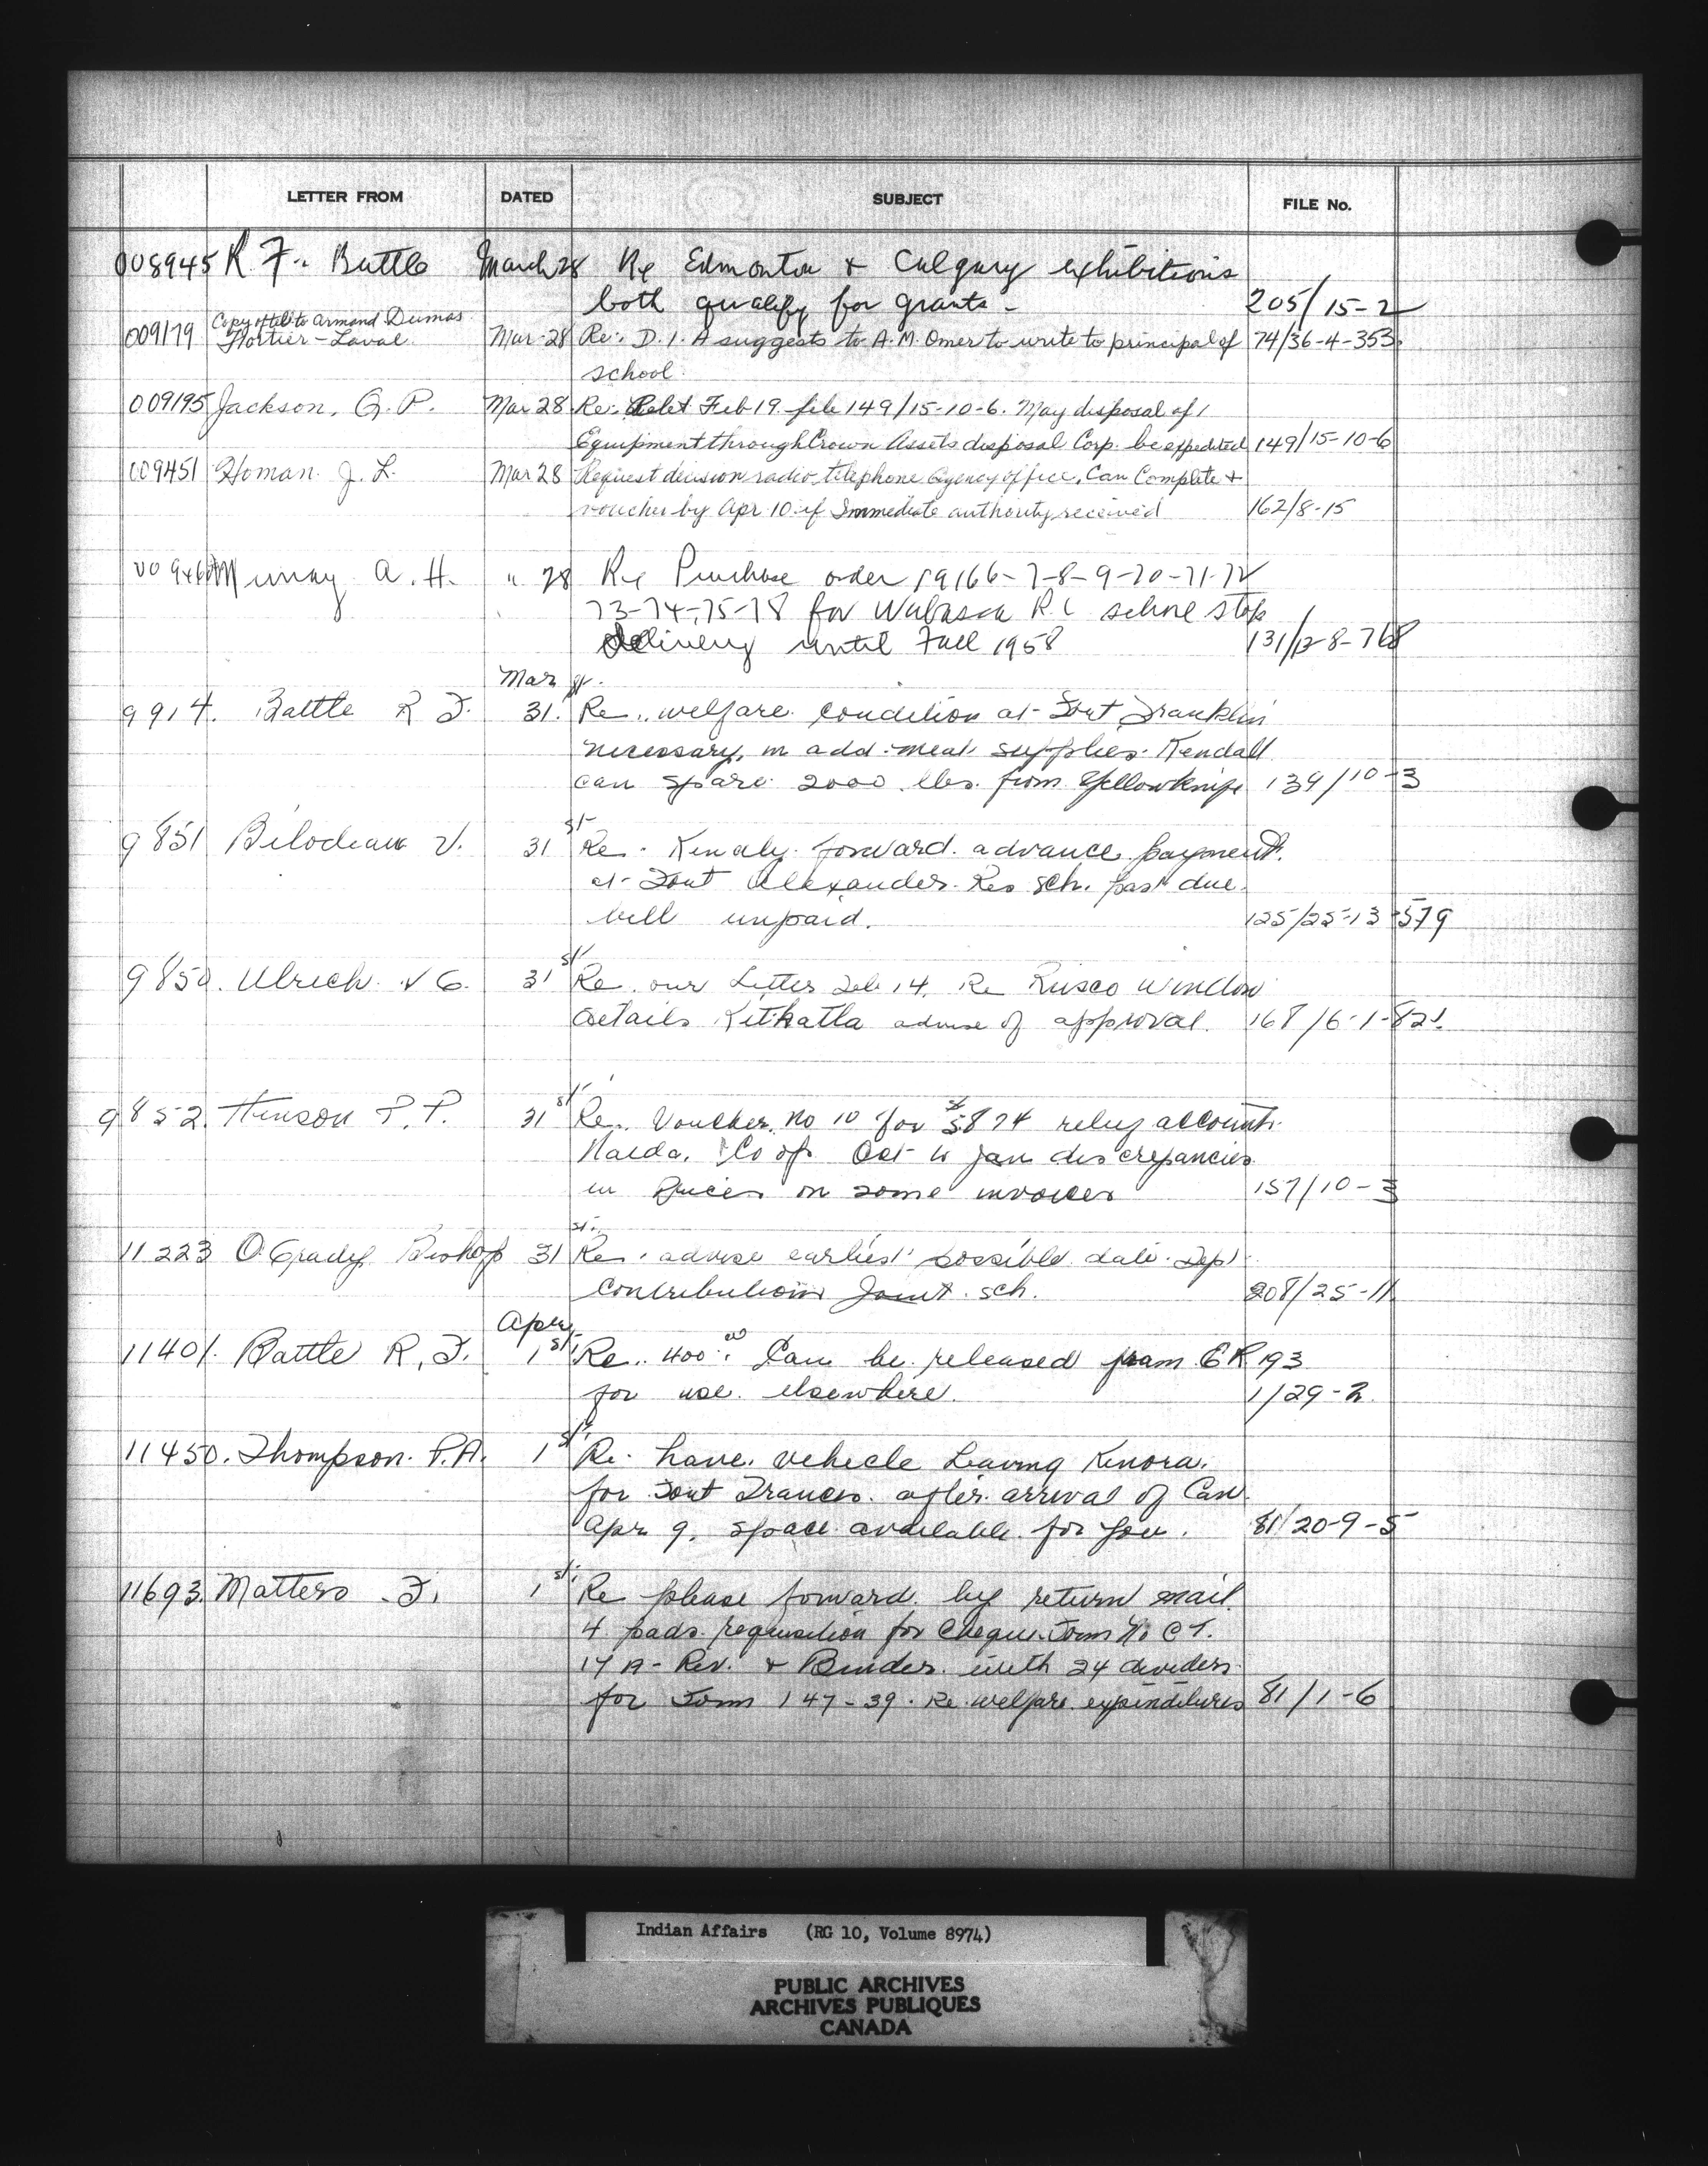 LETTER FROM DATED SUBJECT FILE No.
008945 R F. Battle March 28 Re Edmonton & Calgary exhibitions
both qualify for grants - 205/15-2
Copy of tel to Armand Dumas
009179 Fortier - Laval Mar 28 Re: D.I.A suggests to A.M. Omer to write to principal of 74/36-4-353
school
009195 Jackson, G.P. Mar 28 Re: Relet Feb 19 file 149/15-10-6. May disposal of
Equipment through Crown Assets disposal Corp. be expedited 149/15-10-6
009451 Homan J. L. Mar 28 Request decision radio telephone agency office, Can Complete &
voucher by Apr 10 if Immediate authority received 162/8-15
Murray A. H. " 28 Re Purchase order 19166-7-8-9-70-71-72
73-74-75-78 for Wabasca R C school stop
delivery until Fall 1958
Mar st
9914. Battle R F. 31. Re.. welfare condition at Fort Franklin
necessary, in add. meat supplies. Kendall
can spare 2000 lbs. from Yellowknife 139/10-3
st
9851 Bilodeau V. 31 Re. Kindly forward advance payment.
at Fort Alexander Res Sch. past due
bill unpaid. 125/25-13-579
st
9850. Ulrich V G. 31 Re. our Letter Feb 14. Re Rusco window
details Kitkatla advise of approval. 168/6-1-821
st
9852. Hinson P.P. 31 Re. Voucher No 10 for 5874 relief account
Haida Co op Oct to Jan discrepancies
in prices on some invoices 157/10-3
st
11223 O'Grady Bishop 31 Re. advise earliest possible date. Dept
contribution Joint sch. 208/25-11
April
11401. Battle R, F. 1st Re. 400.00 Can be released from 193
for use elsewhere. 1/29-2
11450. Thompson. P.A. 1st Re. have vehicle Leaving Kenora.
for Fort Frances. after arrival of Can
Apr 9. space available for you. 81/20-9-5
11693. Matters F. 1st Re please forward by return mail
4 pads requisition for Cheque Form No C T.
17 A - Rev. & Binder with 24 dividers
for Form 147-39. Re welfare expenditures 81/1-6
Indian Affairs (RG 10, Volume 8974)
PUBLIC ARCHIVES
ARCHIVES PUBLIQUES
CANADA